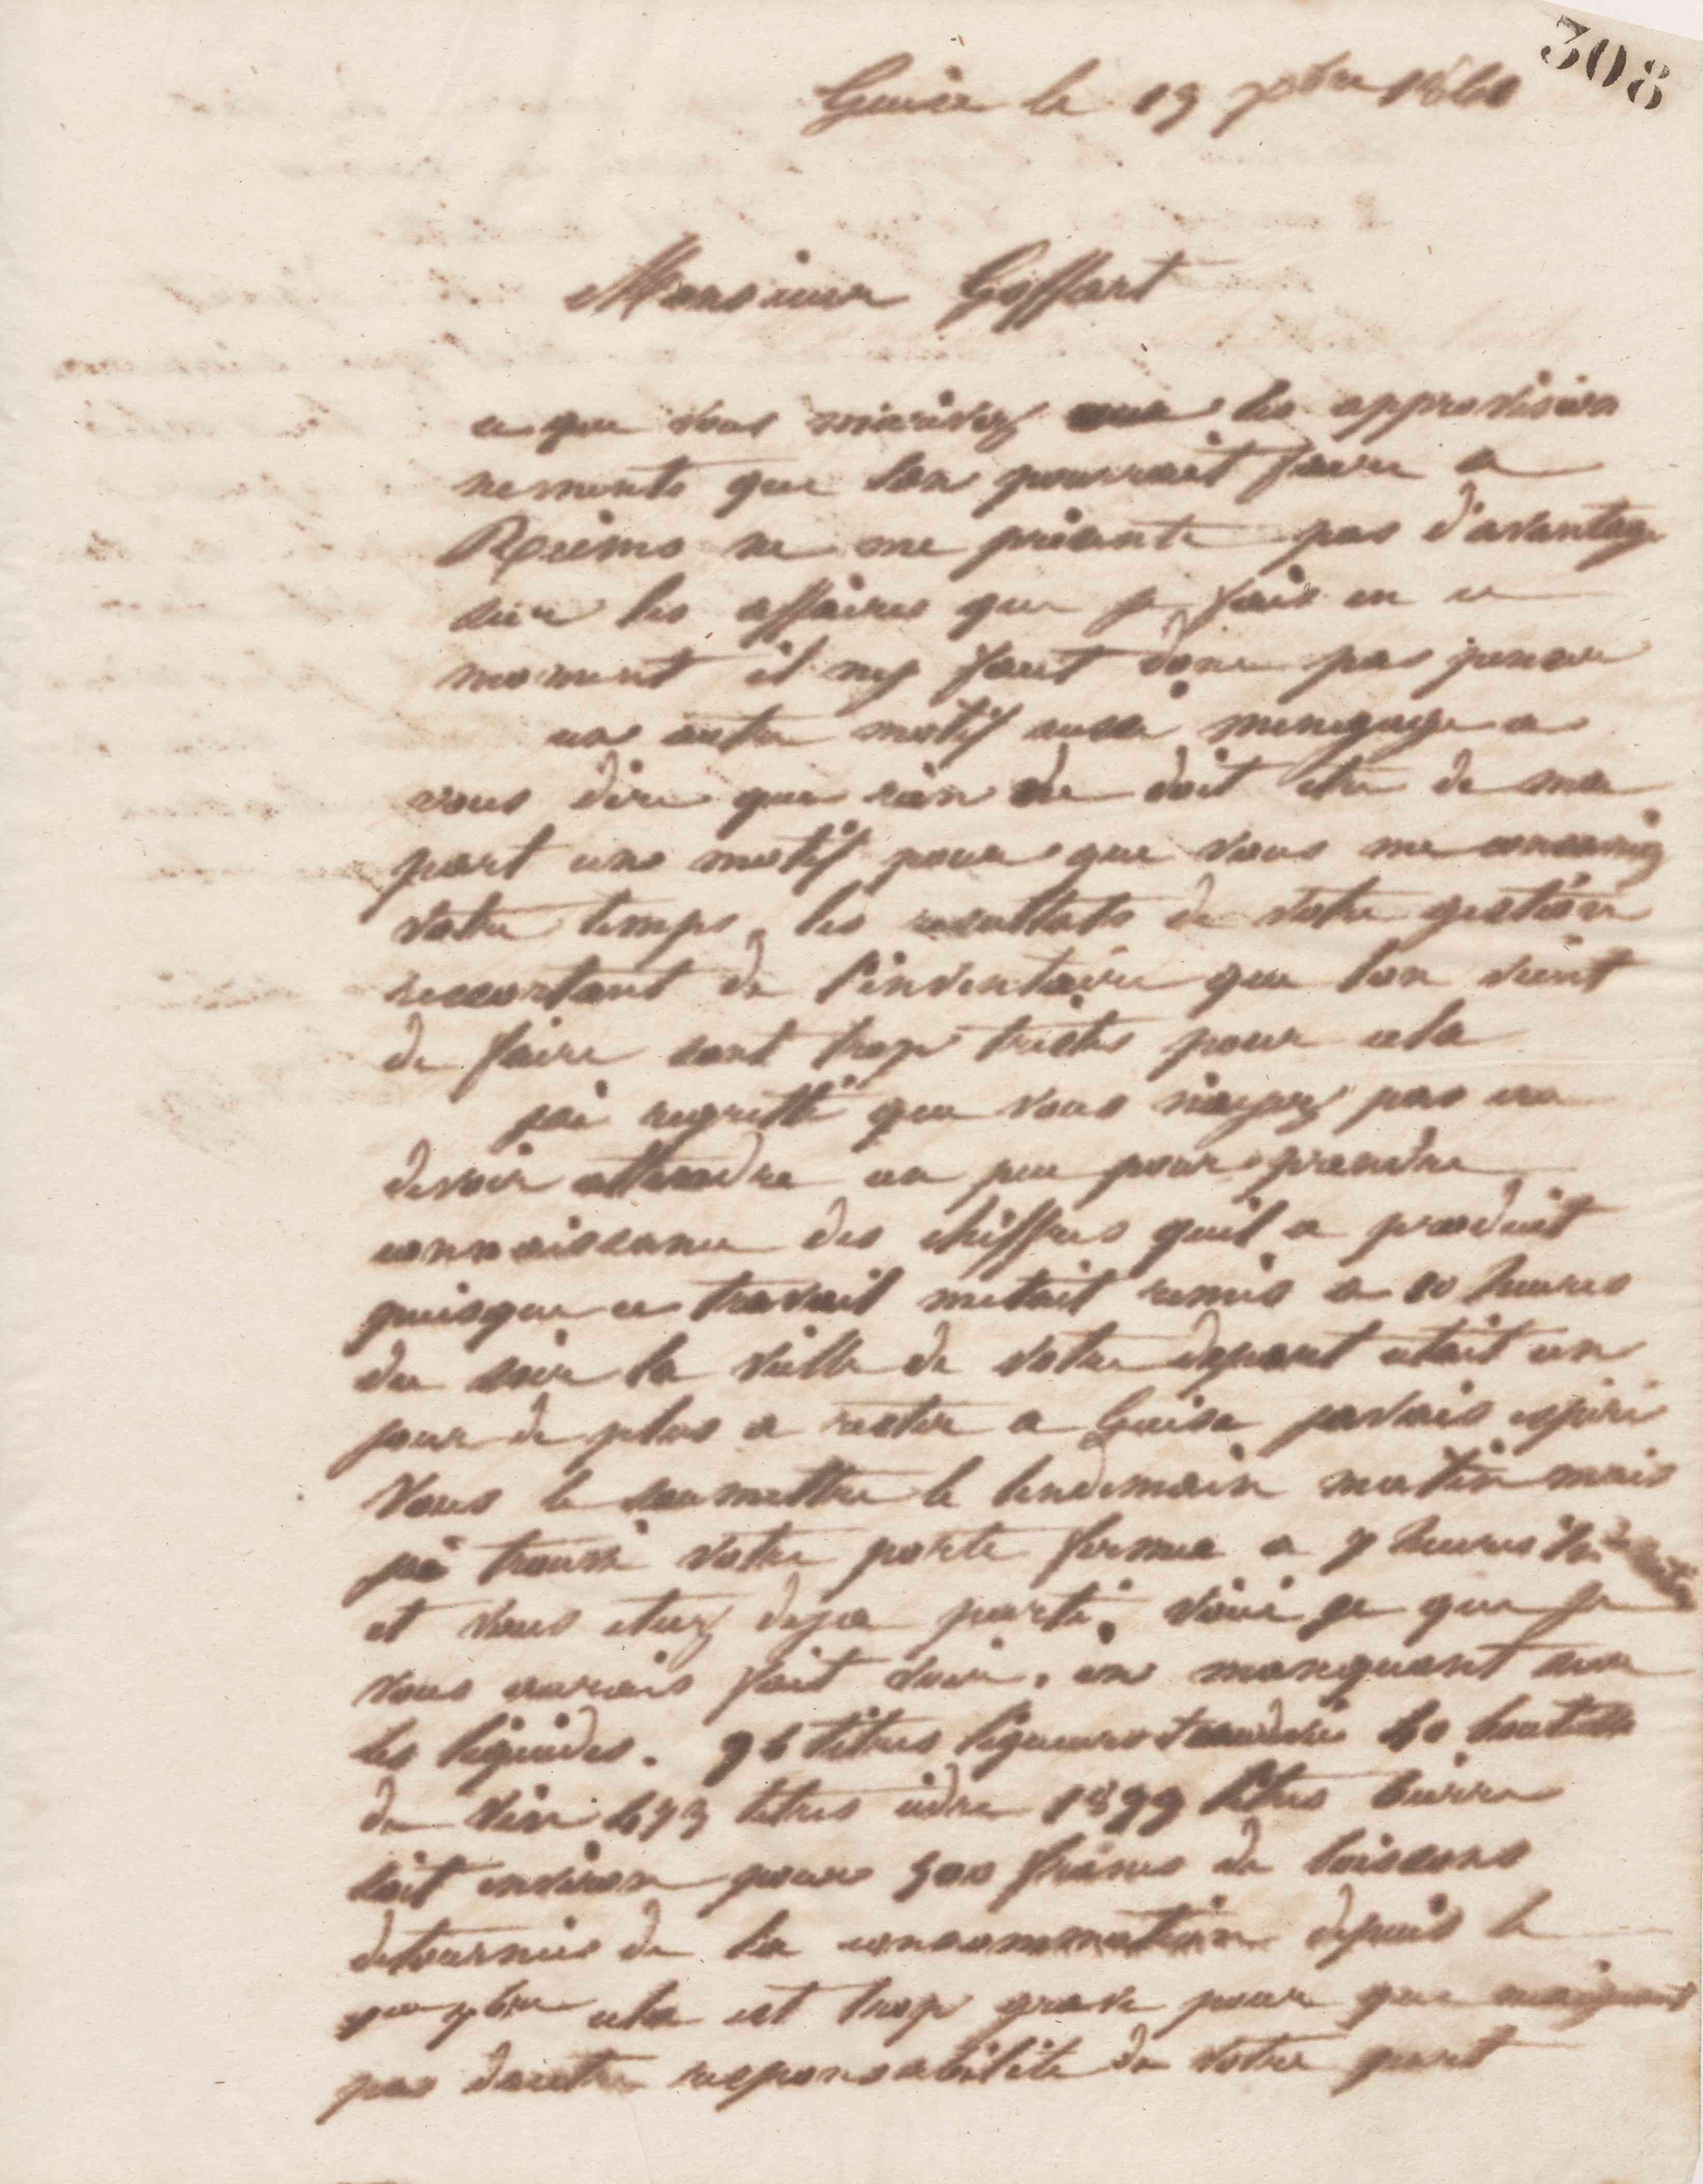 308
Guise le 19 7bre 1861
Monsieur Goffart
ce que vous m'ecrivez sur les approvision
nements que lon pourrait faire a
Reims ne me présente pas d'avantage
sur les affaires que je fais en ce
moment il ny faut donc pas penser
un autre motif aussi mengage a
vous dire que rien ne doit etre de ma
part un motif pour que vous me
votre temps, les resultats de votre gestion
ressortant de l'inventaire que lon vient
de faire sont trop tristes pour cela
jai regretté que vous n'ayez pas cru
devoir attendre un peu pour prendre
connaissance des chiffres quil a produit
puisque ce travail metait remis a 10 heures
du soir la veille de votre depart etait un
jour de plus a rester a Guise javais espéré
vous le soumettre le lendemain matin mais
jai trouvé votre porte fermee a 7 heures
et vous etiez deja parti, voici ce que je
vous aurais fait voir, un manquant sur
les liquides. 96 litres liqueurs 60 bouteilles
de vin 673 litres cidre 1899 litres bierre
soit environ pour 500 francs de boissons
detournees de la consommation depuis le
7bre cela est trop grave pour que
pas dautre responsabilité de votre part